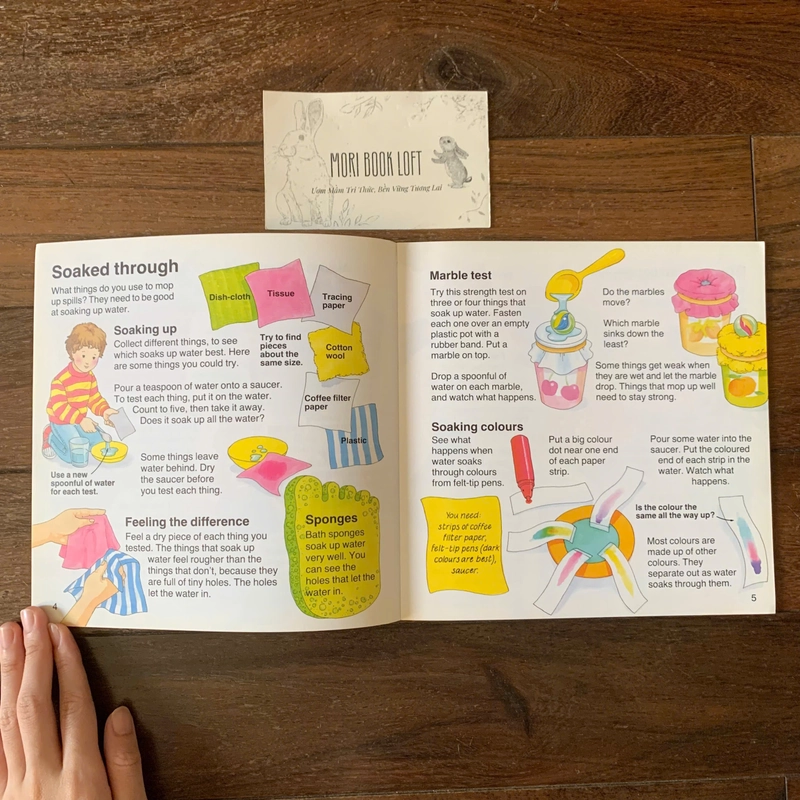 MORI BOOK LOFT
Ươm Mầm Tri Thức, Bền Vững Tương Lai
Soaked through
What things do you use to mop
up spills? They need to be good
at soaking up water.
Dish-cloth
Tissue
Tracing
paper
Soaking up
Collect different things, to see
which soaks up water best. Here
are some things you could try.
Try to find
pieces
about the
same size.
Cotton
wool
Pour a teaspoon of water onto a saucer.
To test each thing, put it on the water.
Count to five, then take it away.
Does it soak up all the water?
Coffee filter
paper
Plastic
Use a new
spoonful of water
for each test.
Some things leave
water behind. Dry
the saucer before
you test each thing.
Feeling the difference
Feel a dry piece of each thing you
tested. The things that soak up
water feel rougher than the
things that don't, because they
are full of tiny holes. The holes
let the water in.
Sponges
Bath sponges
soak up water
very well. You
can see the
holes that let the
water in.
4
Marble test
Try this strength test on
three or four things that
soak up water. Fasten
each one over an empty
plastic pot with a
rubber band. Put a
marble on top.
Drop a spoonful of
water on each marble,
and watch what happens.
Do the marbles
move?
Which marble
sinks down the
least?
Some things get weak when
they are wet and let the marble
drop. Things that mop up well
need to stay strong.
Soaking colours
See what
happens when
water soaks
through colours
from felt-tip pens.
Put a big colour
dot near one end
of each paper
strip.
Pour some water into the
saucer. Put the coloured
end of each strip in the
water. Watch what
happens.
You need:
strips of coffee
filter paper,
felt-tip pens (dark
colours are best),
saucer.
Is the colour the
same all the way up?
Most colours are
made up of other
colours. They
separate out as water
soaks through them.
5